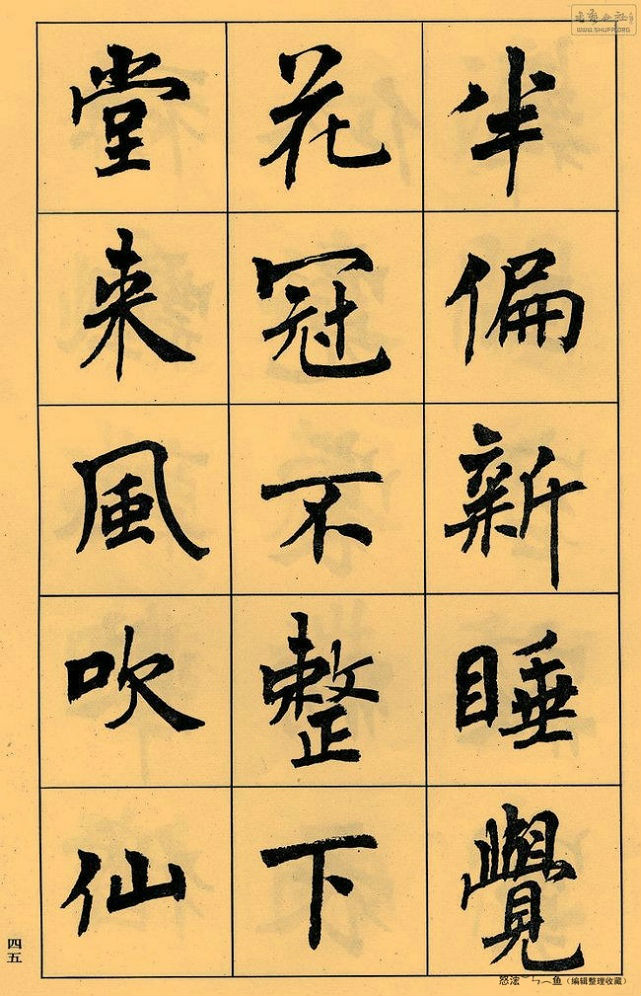 半偏新睡覺
花冠不整下
堂来風吹仙
四五
WWW.SHUFA.ORG
(编辑整理收藏)